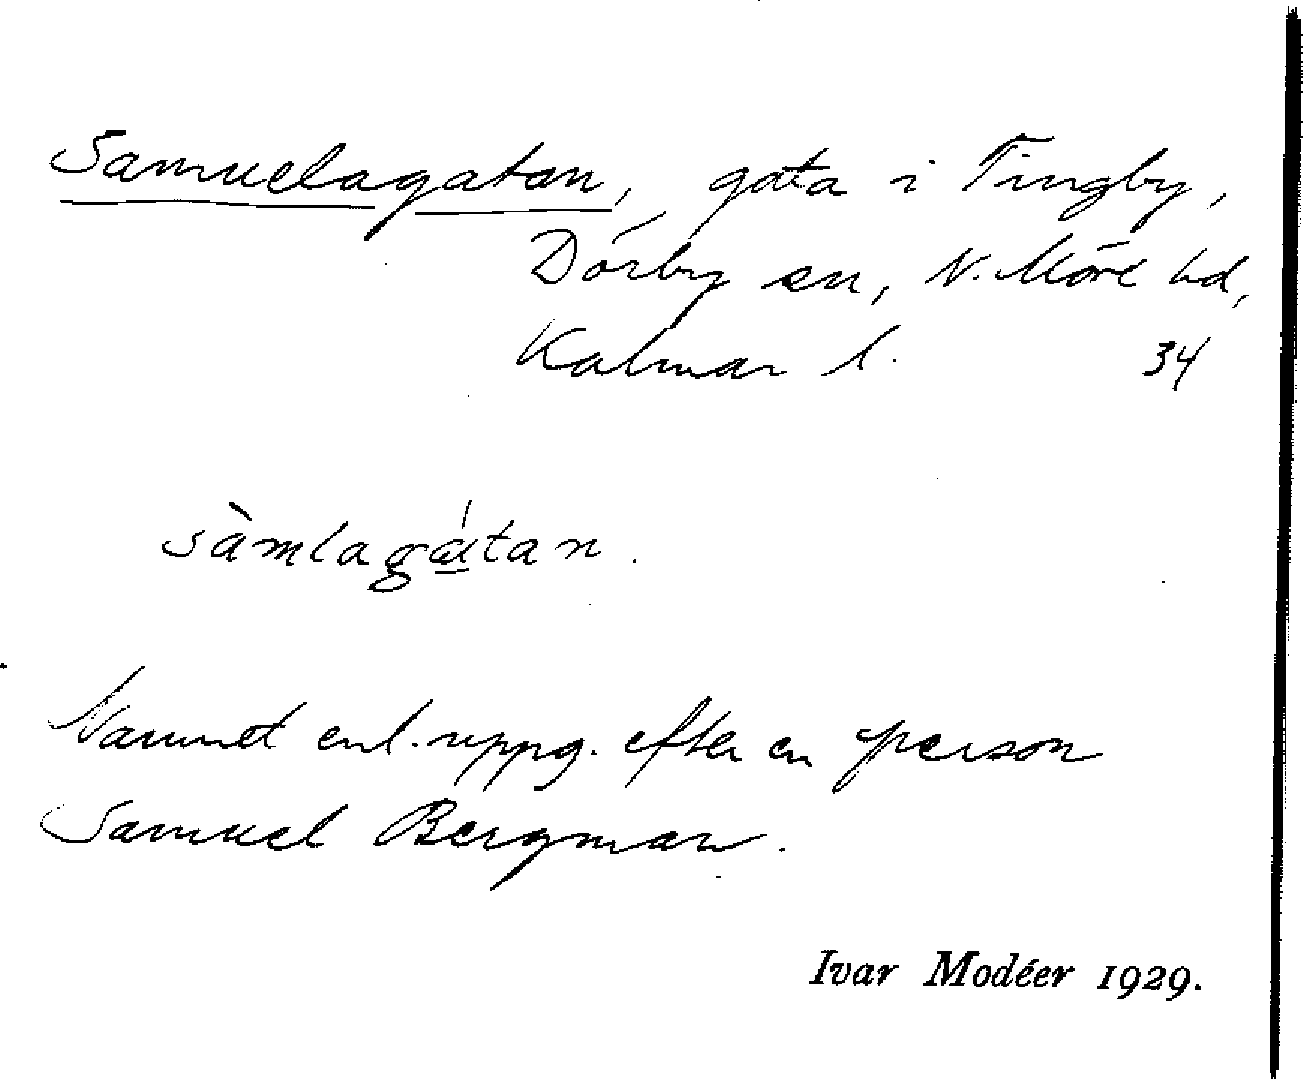 Samuelagatan, gata i Tingby,
Dörby sn, N. Möre hd,
Kalmar l. 34
sàmlagátan.
Namnet enl. uppg. efter en person
Samuel Bergman.
Ivar Modéer 1929.